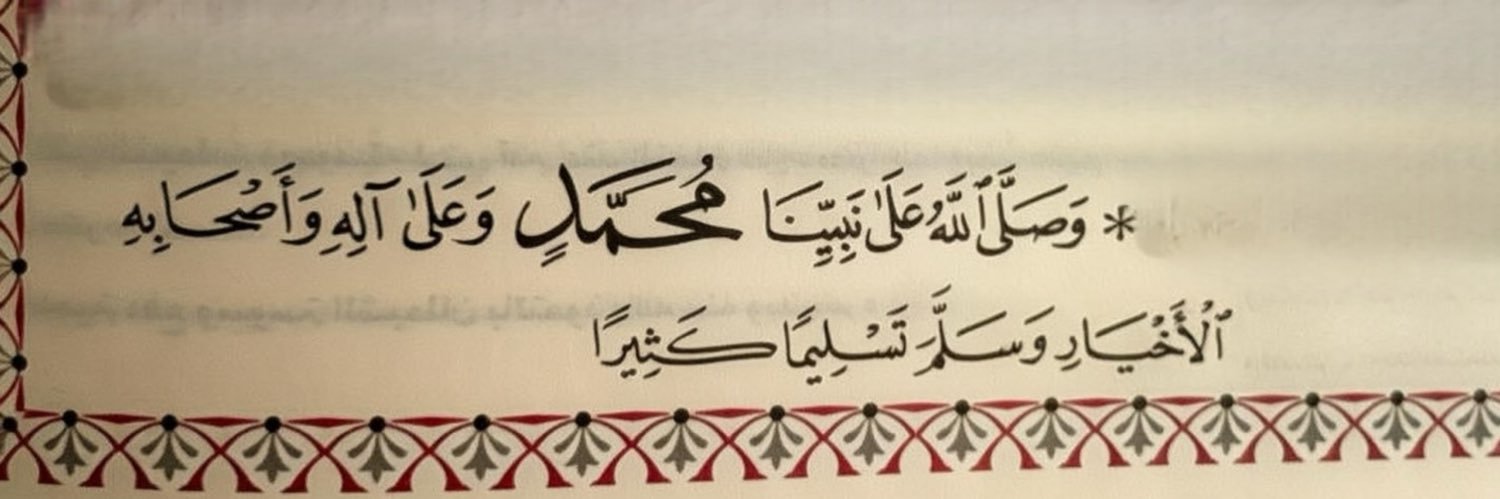 * وَصَلَّى ٱللَّهُ عَلَىٰ نَبِيِّنَا مُحَمَّدٍ وَعَلَىٰ آلِهِ وَأَصْحَابِهِ
ٱلْأَخْيَارِ وَسَلَّمَ تَسْلِيمًا كَثِيرًا